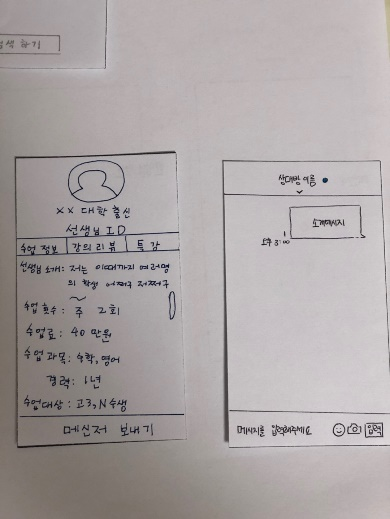 하기
XX 대학 출신
선생님 ID
수업 정보
강의 리뷰
특강
선생님 소개: 저는 이때까지 여러명
의 학생 어쩌구 저쩌구
수업 횟수: 주 2회
수업료: 40 만원
수업 과목: 수학, 영어
경력: 1년
수업대상: 고3, N수생
메신저 보내기
상대방 이름
소개메시지
1
오후 3:00
메시지를 입력해주세요
입력